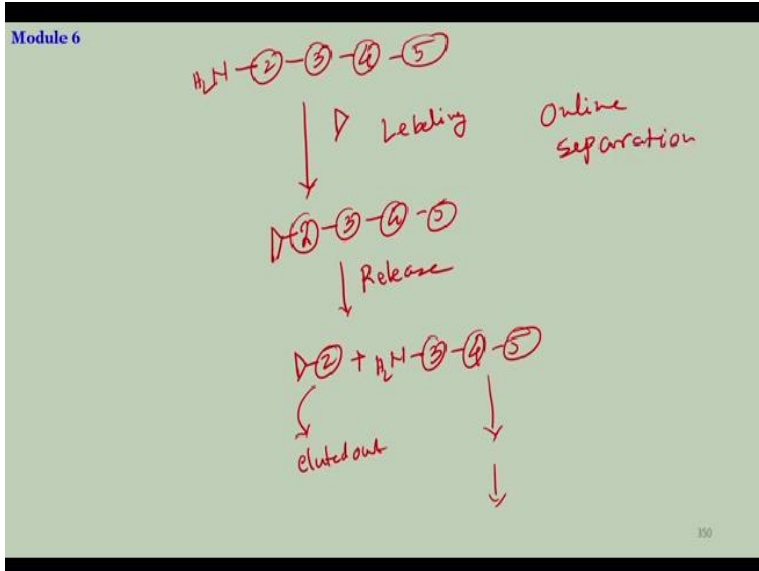 Module 6
H2N-2-3-4-5
Lebeling
Online
separation
2-3-4-5
Release
2 + H2N-3-4-5
eluted out
350